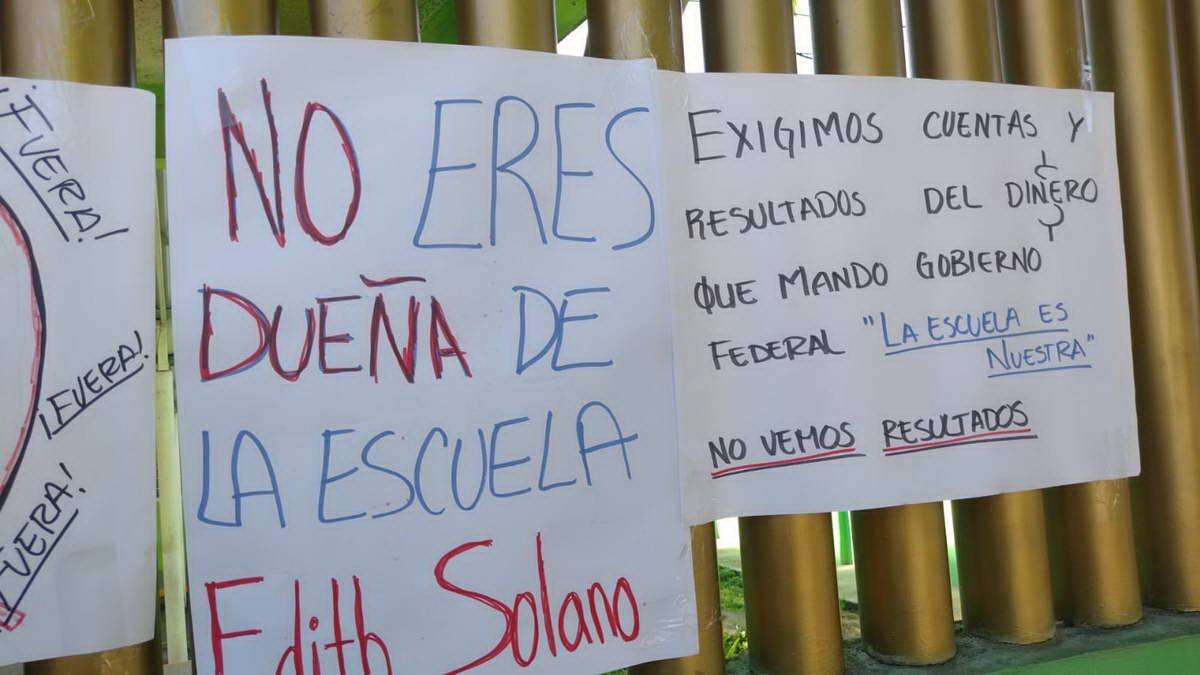 ¡FUERA!
¡FUERA!
FUERA!
NO ERES
DUEÑA DE
LA ESCUELA
Edith Solano
EXIGIMOS CUENTAS Y
RESULTADOS DEL DINERO
QUE MANDO GOBIERNO
FEDERAL "LA ESCUELA ES
NUESTRA"
NO VEMOS RESULTADOS